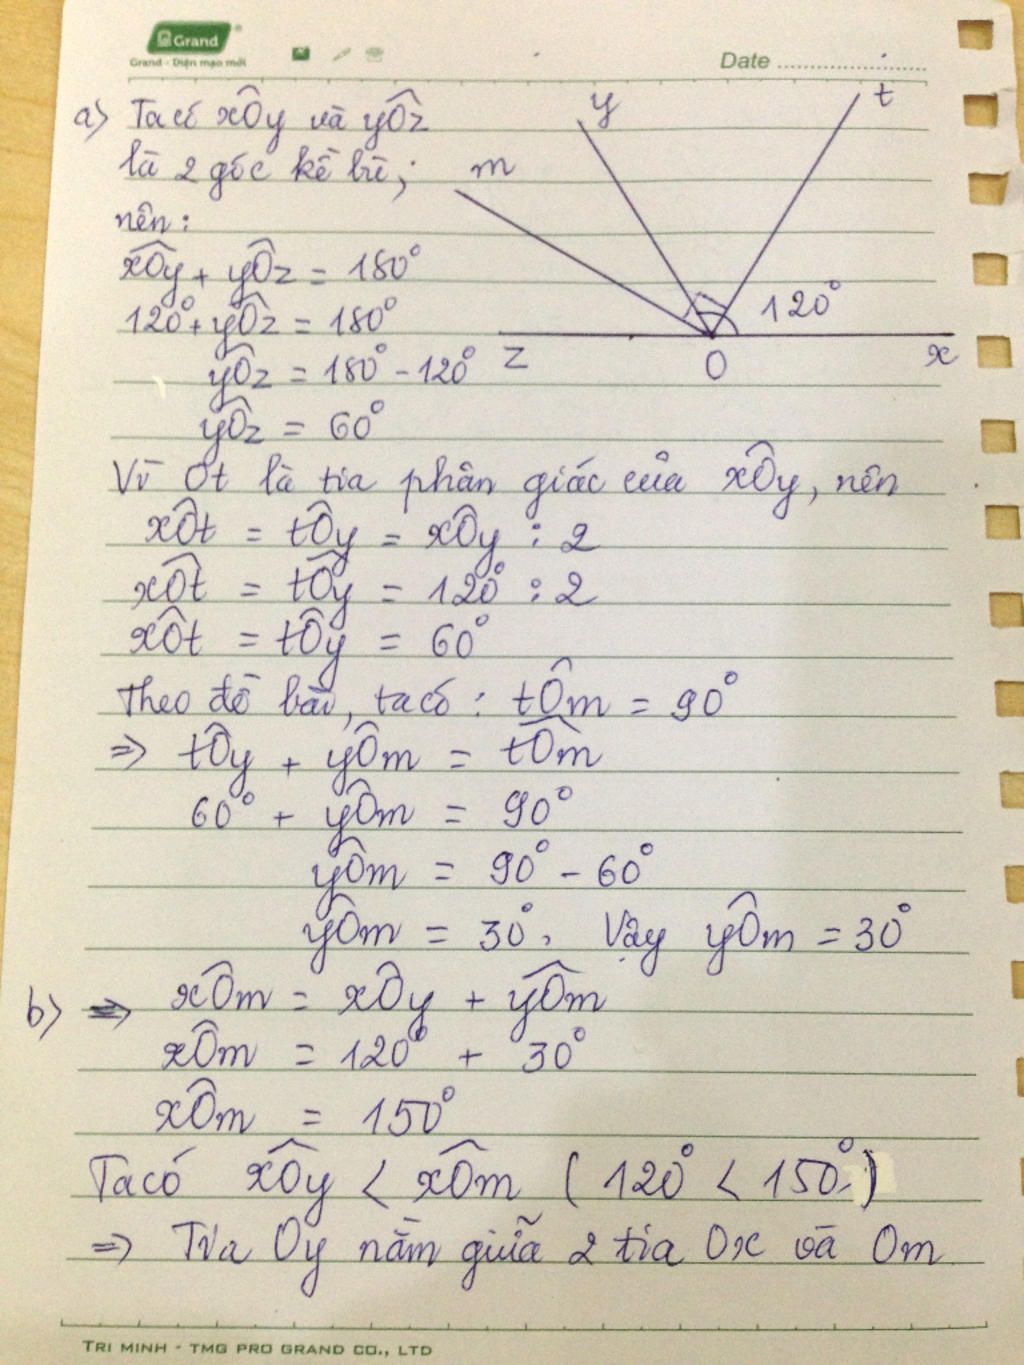 Grand
Grand - Diện mạo mới
Date
a) Ta có xÔy và yÔz
là 2 góc kề bù;
nên:
xÔy + yÔz = 180°
120° + yÔz = 180°
yÔz = 180° - 120°
yÔz = 60°
y
t
m
120°
z
O
x
Vì Ot là tia phân giác của xÔy, nên
xÔt = tÔy = xÔy : 2
xÔt = tÔy = 120° : 2
xÔt = tÔy = 60°
Theo đề bài, ta có: tÔm = 90°
=> tÔy + yÔm = tÔm
60° + yÔm = 90°
yÔm = 90° - 60°
yÔm = 30°. Vậy yÔm = 30°
b) => xÔm = xÔy + yÔm
xÔm = 120° + 30°
xÔm = 150°
Ta có xÔy < xÔm (120° < 150°)
=> Tia Oy nằm giữa 2 tia Ox và Om
TRI MINH - TMG PRO GRAND CO., LTD